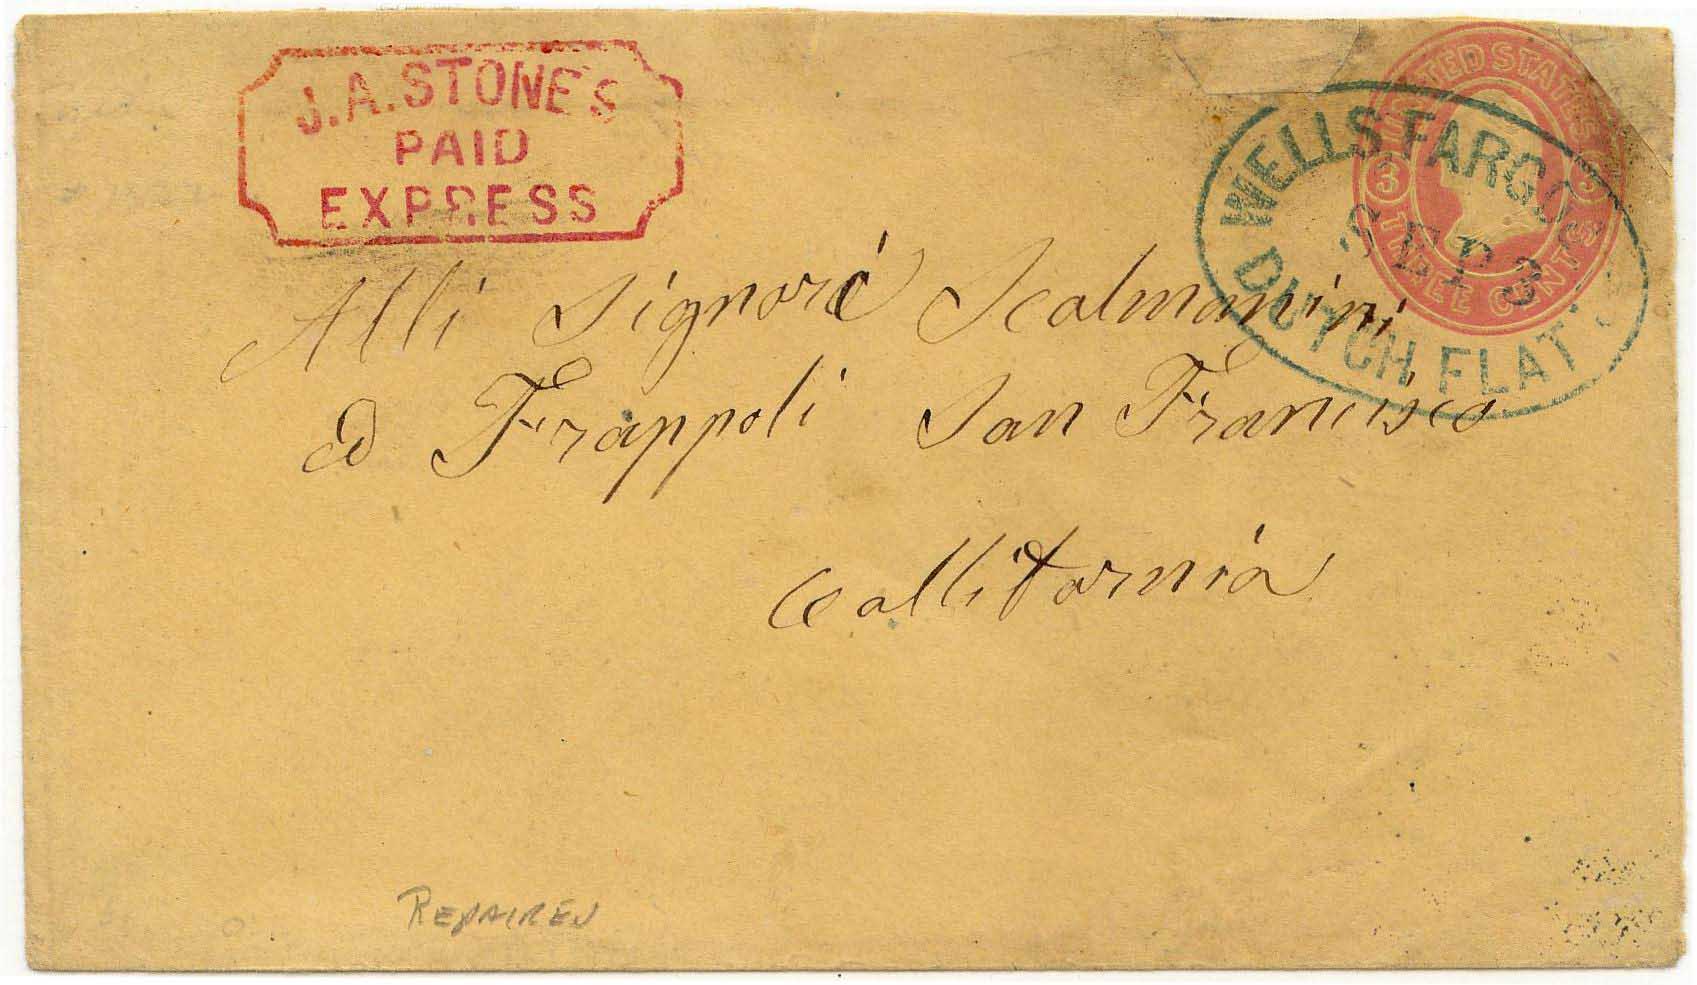 J.A.STONE'S
PAID
EXPRESS
UNITED STATES
3 3
THREE CENTS
WELLS FARGO
SEP 3
DUTCH FLAT
Alli Signori Scalmanini
ed Frappoli San Francisco
Callifornia
REPAIRED